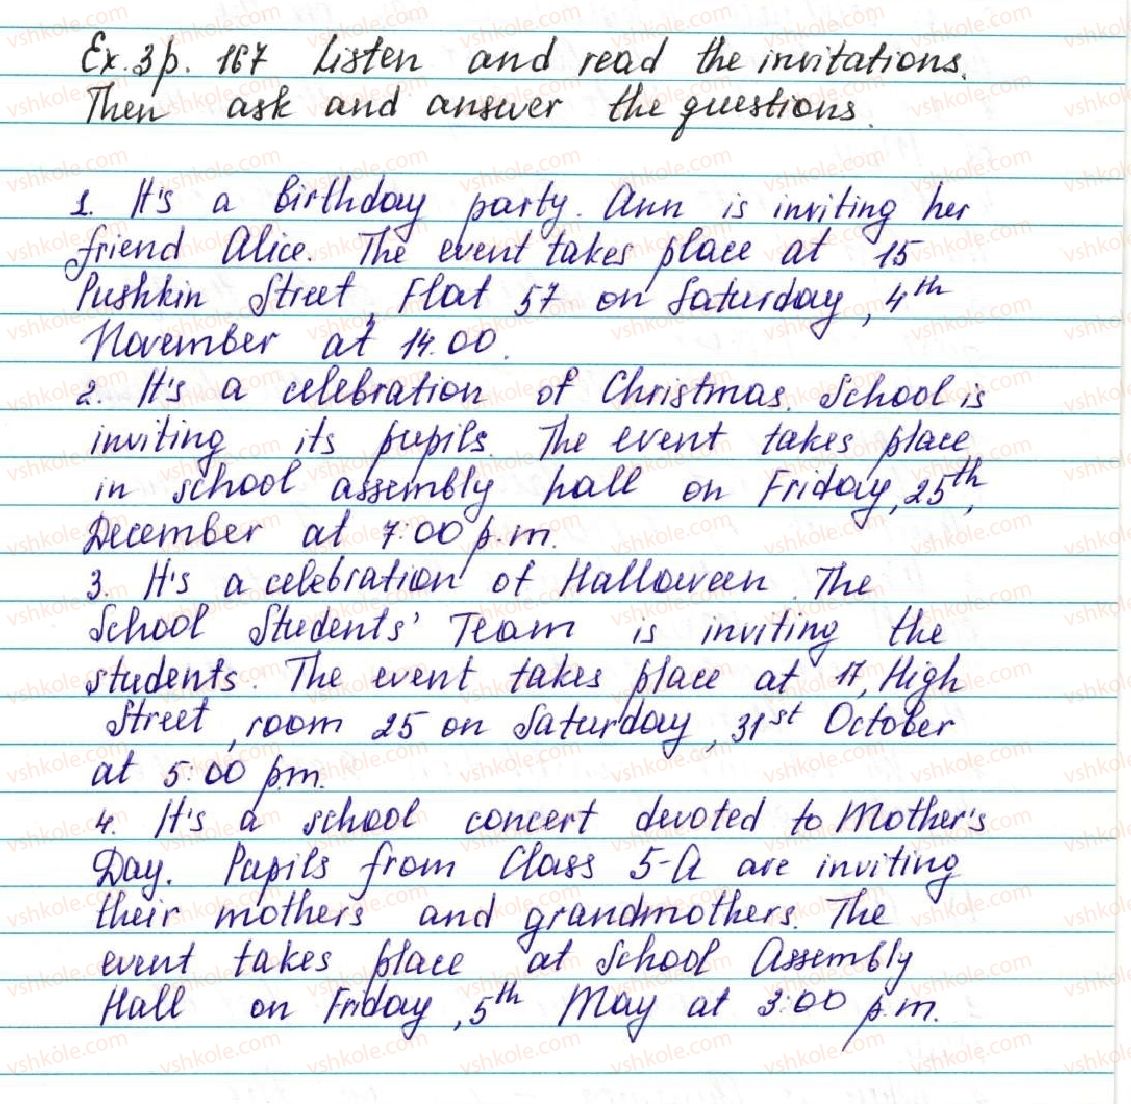 Ex. 3 p. 167 Listen and read the invitations.
Then ask and answer the questions.
1. It's a birthday party. Ann is inviting her
friend Alice. The event takes place at 15
Pushkin Street, Flat 57 on Saturday, 4th
November at 14.00.
2. It's a celebration of Christmas. School is
inviting its pupils. The event takes place
in school assembly hall on Friday, 25th,
December at 7:00 p.m.
3. It's a celebration of Halloween. The
School Students' Team is inviting the
students. The event takes place at 17, High
Street, room 25 on Saturday, 31st October
at 5:00 p.m.
4. It's a school concert devoted to Mother's
Day. Pupils from Class 5-A are inviting
their mothers and grandmothers. The
event takes place at School Assembly
Hall on Friday, 5th May at 3:00 p.m.